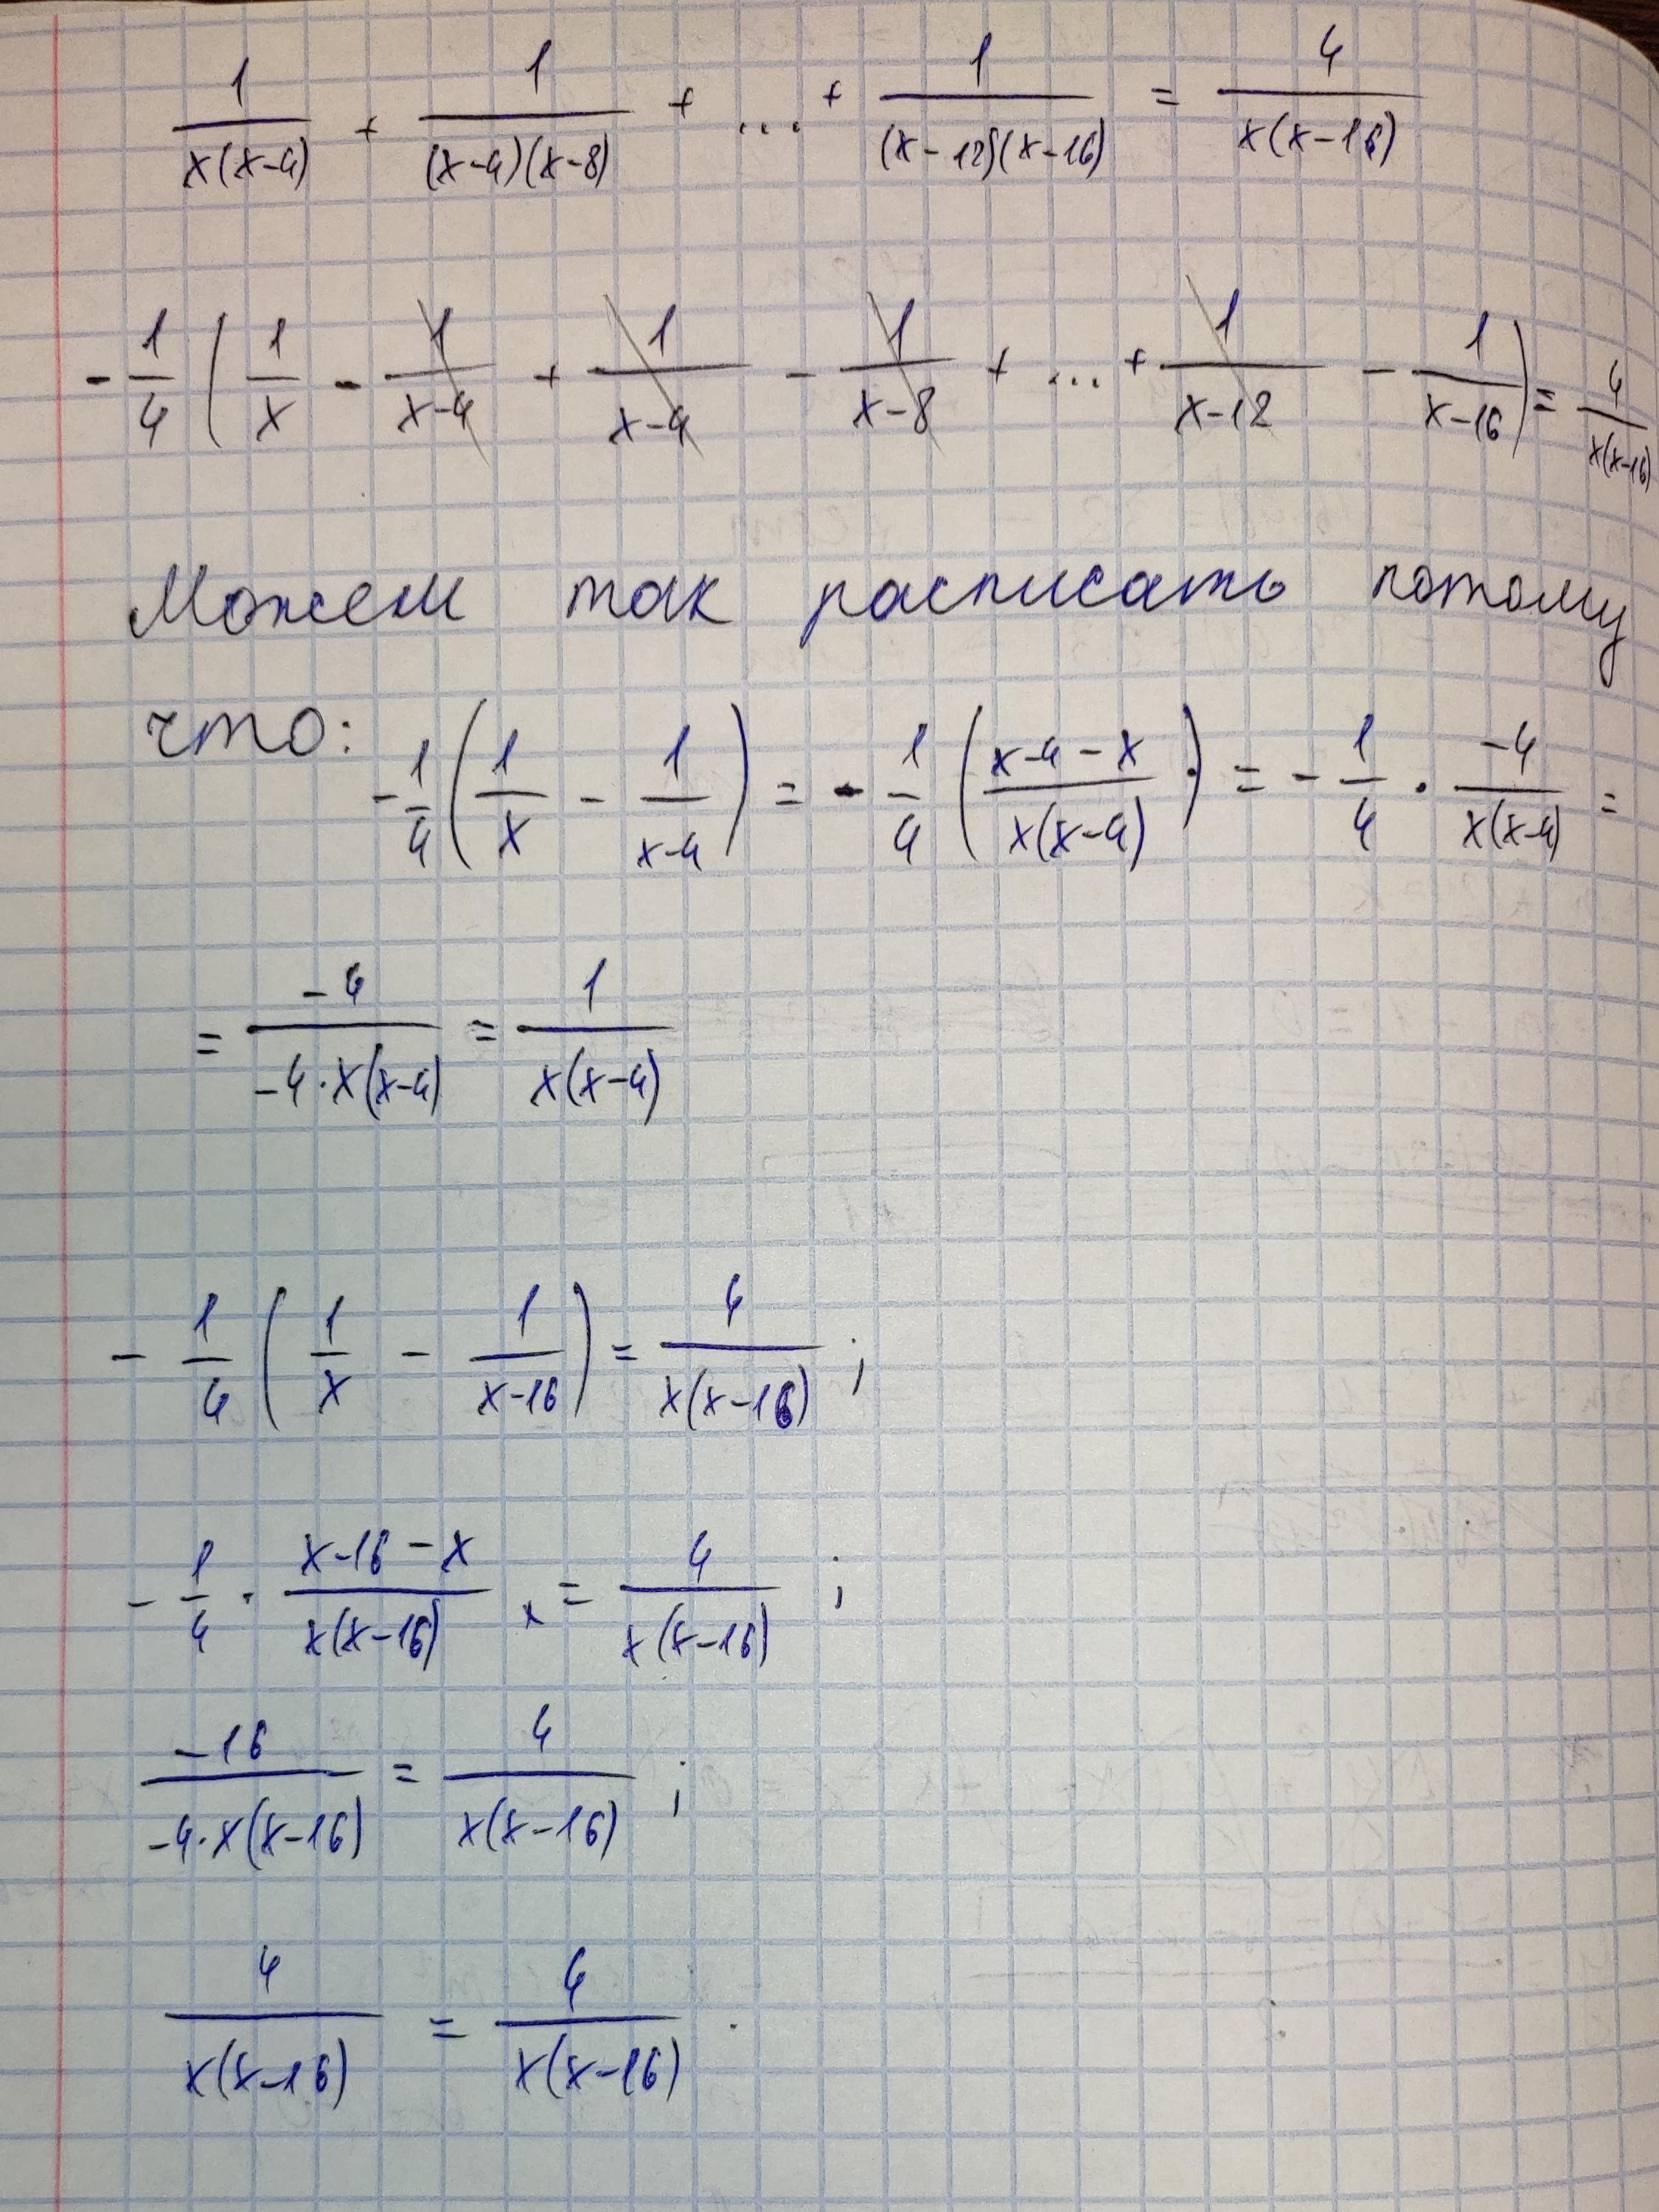 1/(x(x-4)) + 1/((x-4)(x-8)) + ... + 1/((x-12)(x-16)) = 4/(x(x-16))
-1/4 (1/x - 1/(x-4) + 1/(x-4) - 1/(x-8) + ... + 1/(x-12) - 1/(x-16)) = 4/(x(x-16))
Можем так расписать потому
что: -1/4 (1/x - 1/(x-4)) = -1/4 ((x-4-x)/(x(x-4))) = -1/4 · (-4)/(x(x-4)) =
= (-4)/(-4·x(x-4)) = 1/(x(x-4))
-1/4 (1/x - 1/(x-16)) = 4/(x(x-16)) ;
-1/4 · (x-16-x)/(x(x-16)) = 4/(x(x-16)) ;
(-16)/(-4·x(x-16)) = 4/(x(x-16)) ;
4/(x(x-16)) = 4/(x(x-16)) .